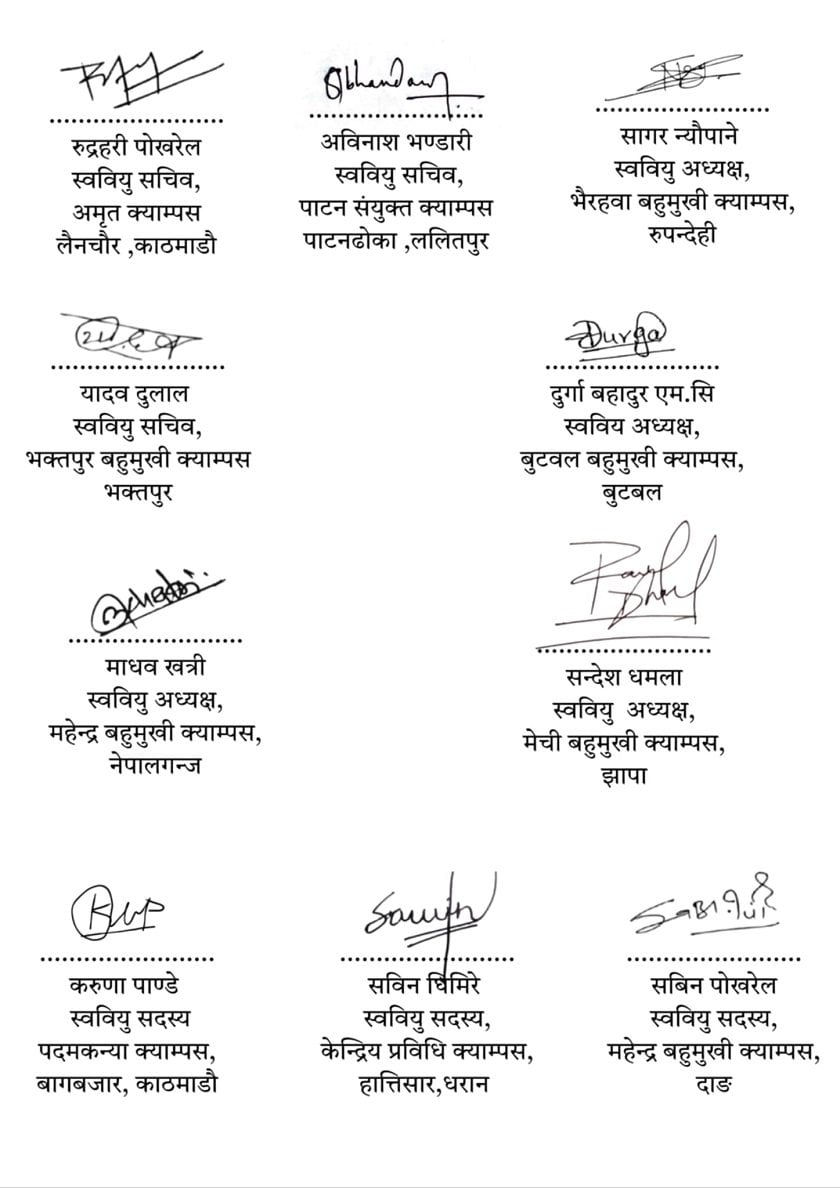 रुद्रहरी पोखरेल
स्ववियु सचिव,
अमृत क्याम्पस
लैनचौर ,काठमाडौ
Bhandari
अविनाश भण्डारी
स्ववियु सचिव,
पाटन संयुक्त क्याम्पस
पाटनढोका ,ललितपुर
सागर न्यौपाने
स्ववियु अध्यक्ष,
भैरहवा बहुमुखी क्याम्पस,
रुपन्देही
यादव दुलाल
स्ववियु सचिव,
भक्तपुर बहुमुखी क्याम्पस
भक्तपुर
Durga
दुर्गा बहादुर एम.सि
स्वविय अध्यक्ष,
बुटवल बहुमुखी क्याम्पस,
बुटबल
माधव खत्री
स्ववियु अध्यक्ष,
महेन्द्र बहुमुखी क्याम्पस,
नेपालगन्ज
सन्देश धमला
स्ववियु अध्यक्ष,
मेची बहुमुखी क्याम्पस,
झापा
करुणा पाण्डे
स्ववियु सदस्य
पदमकन्या क्याम्पस,
बागबजार, काठमाडौ
सविन घिमिरे
स्ववियु सदस्य,
केन्द्रिय प्रविधि क्याम्पस,
हात्तिसार,धरान
सबिन पोखरेल
स्ववियु सदस्य,
महेन्द्र बहुमुखी क्याम्पस,
दाङ